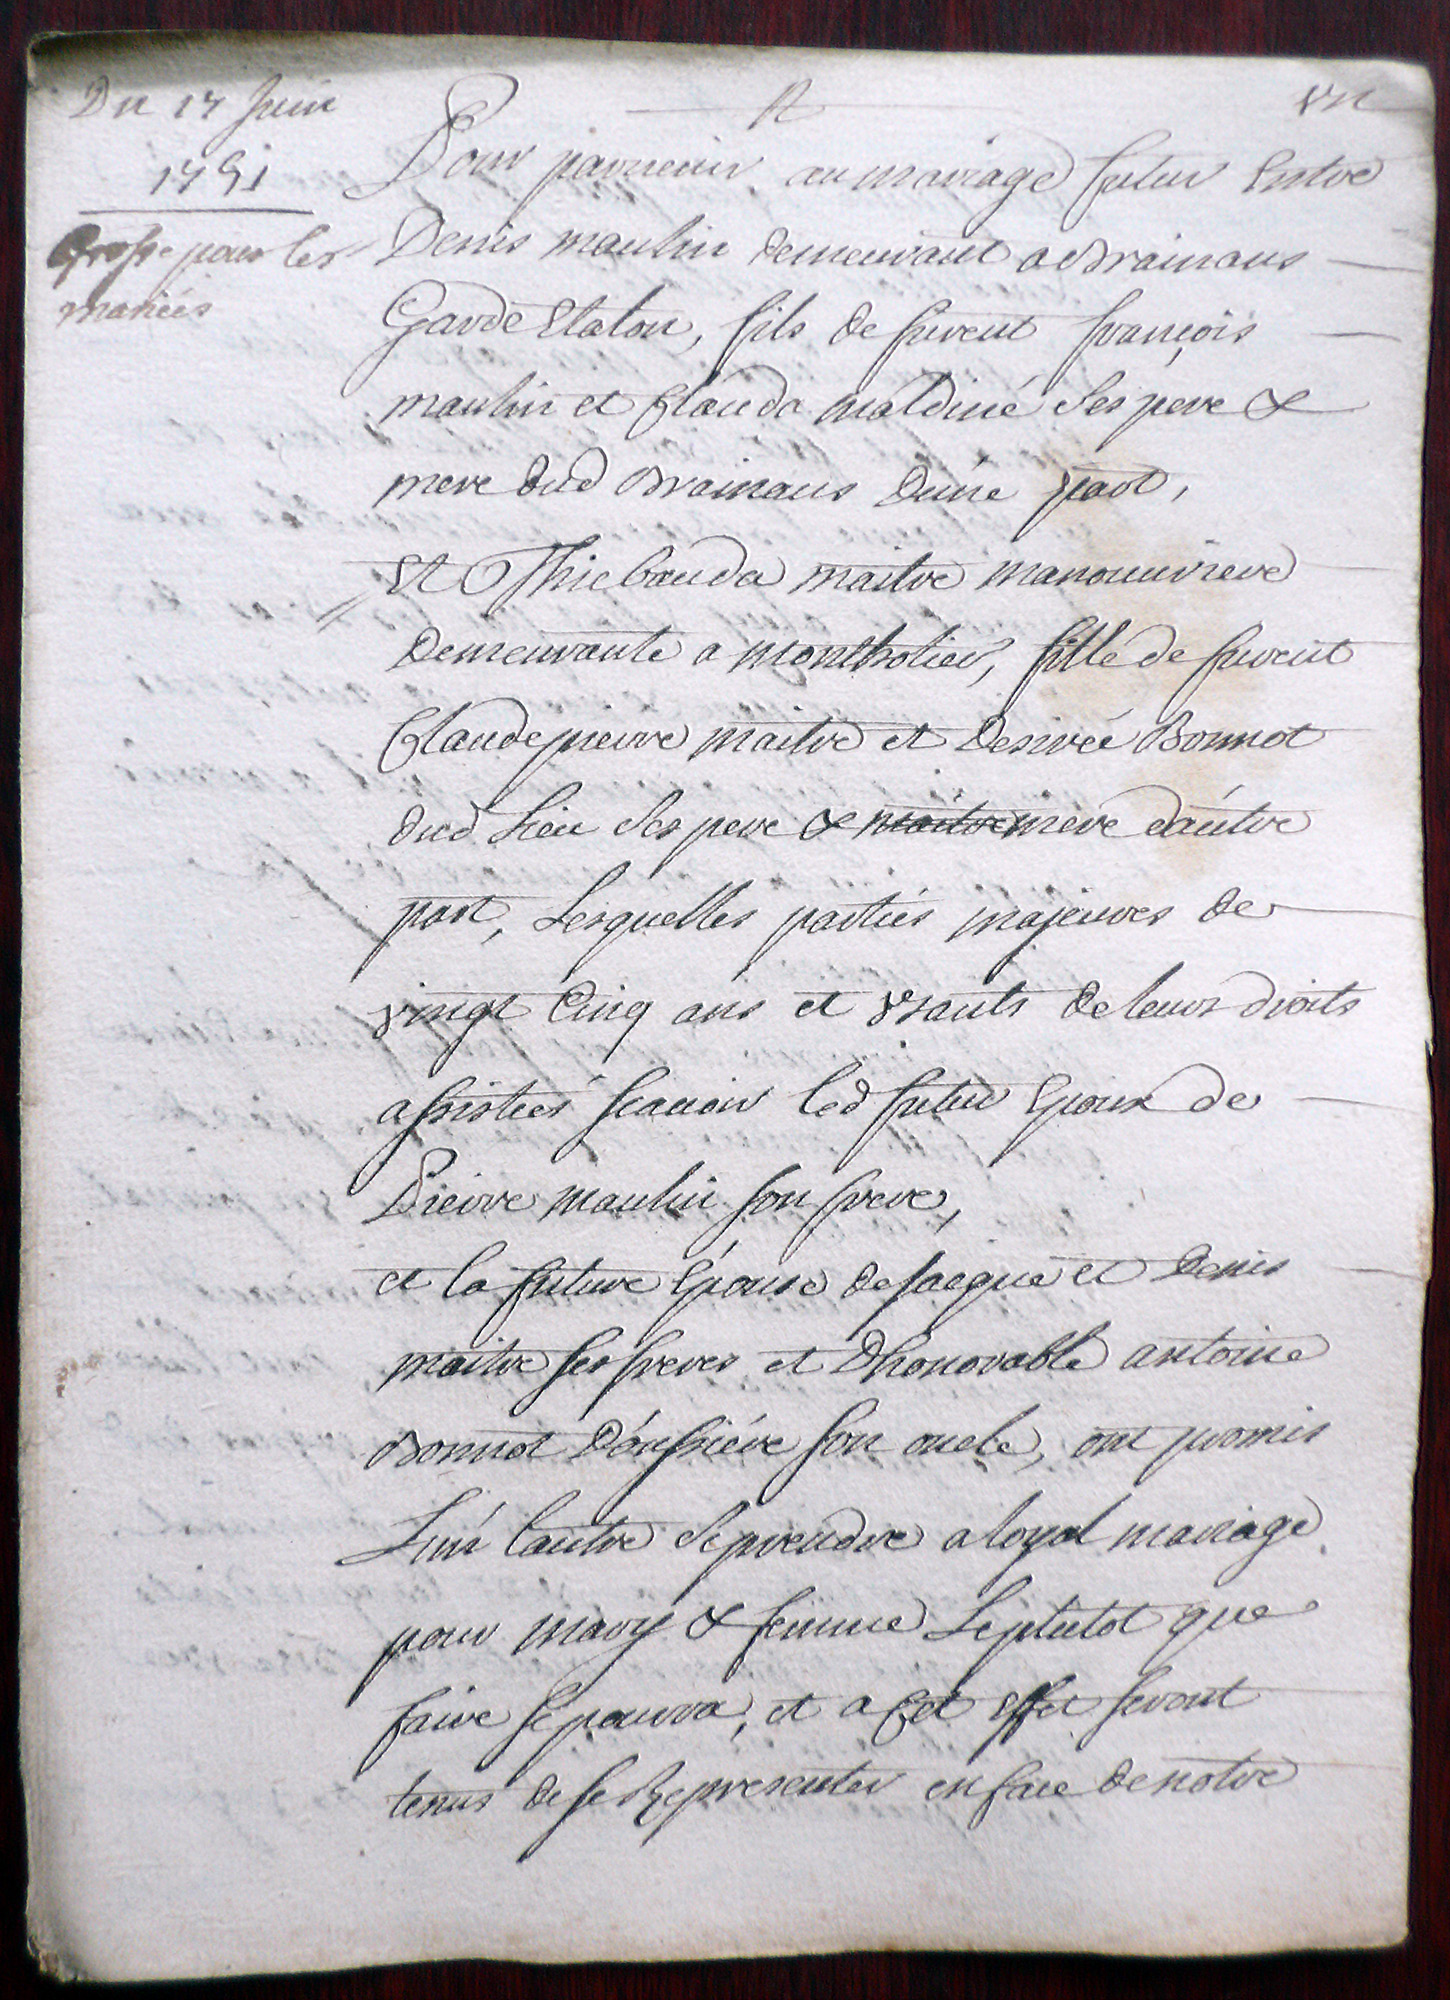 Du 17 Juin
1751
Grosse pour les
mariées
A
un
Pour parvenir au mariage futur Entre
Denis maulin demeurant a Brainans
Garde Etalon, fils de furent françois
maulin et Clauda maldiné Ses pere &
mere dud Brainans d'une part,
Et Thiebauda maitre manouuriere
demeurante a montholier, fille de furent
Claude pierre maitre et Desirée Bonnot
dud Lieu Ses pere & maitre mere d'autre
part, Lesquelles parties majeures de
vingt Cinq ans et Usants de leurs droits
assistées scauoir led futur Epoux de
Pierre maulin son frere,
et la future Epouse de Jacque et Denis
maitre ses freres et d'honorable antoine
Bonnot d'aussiére son oncle, ont promis
L'un l'autre Se prendre a loyal mariage
pour mary & femme Le plutot que
faire se pourra, et a Cet Effet seront
tenus de se Representer en face de notre